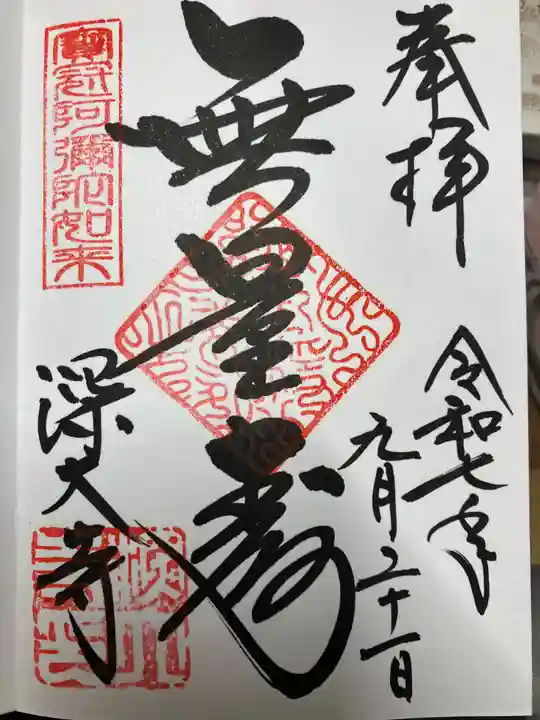 奉拝
令和七年
九月二十一日
無量壽
寶冠阿彌陀如来
深大寺